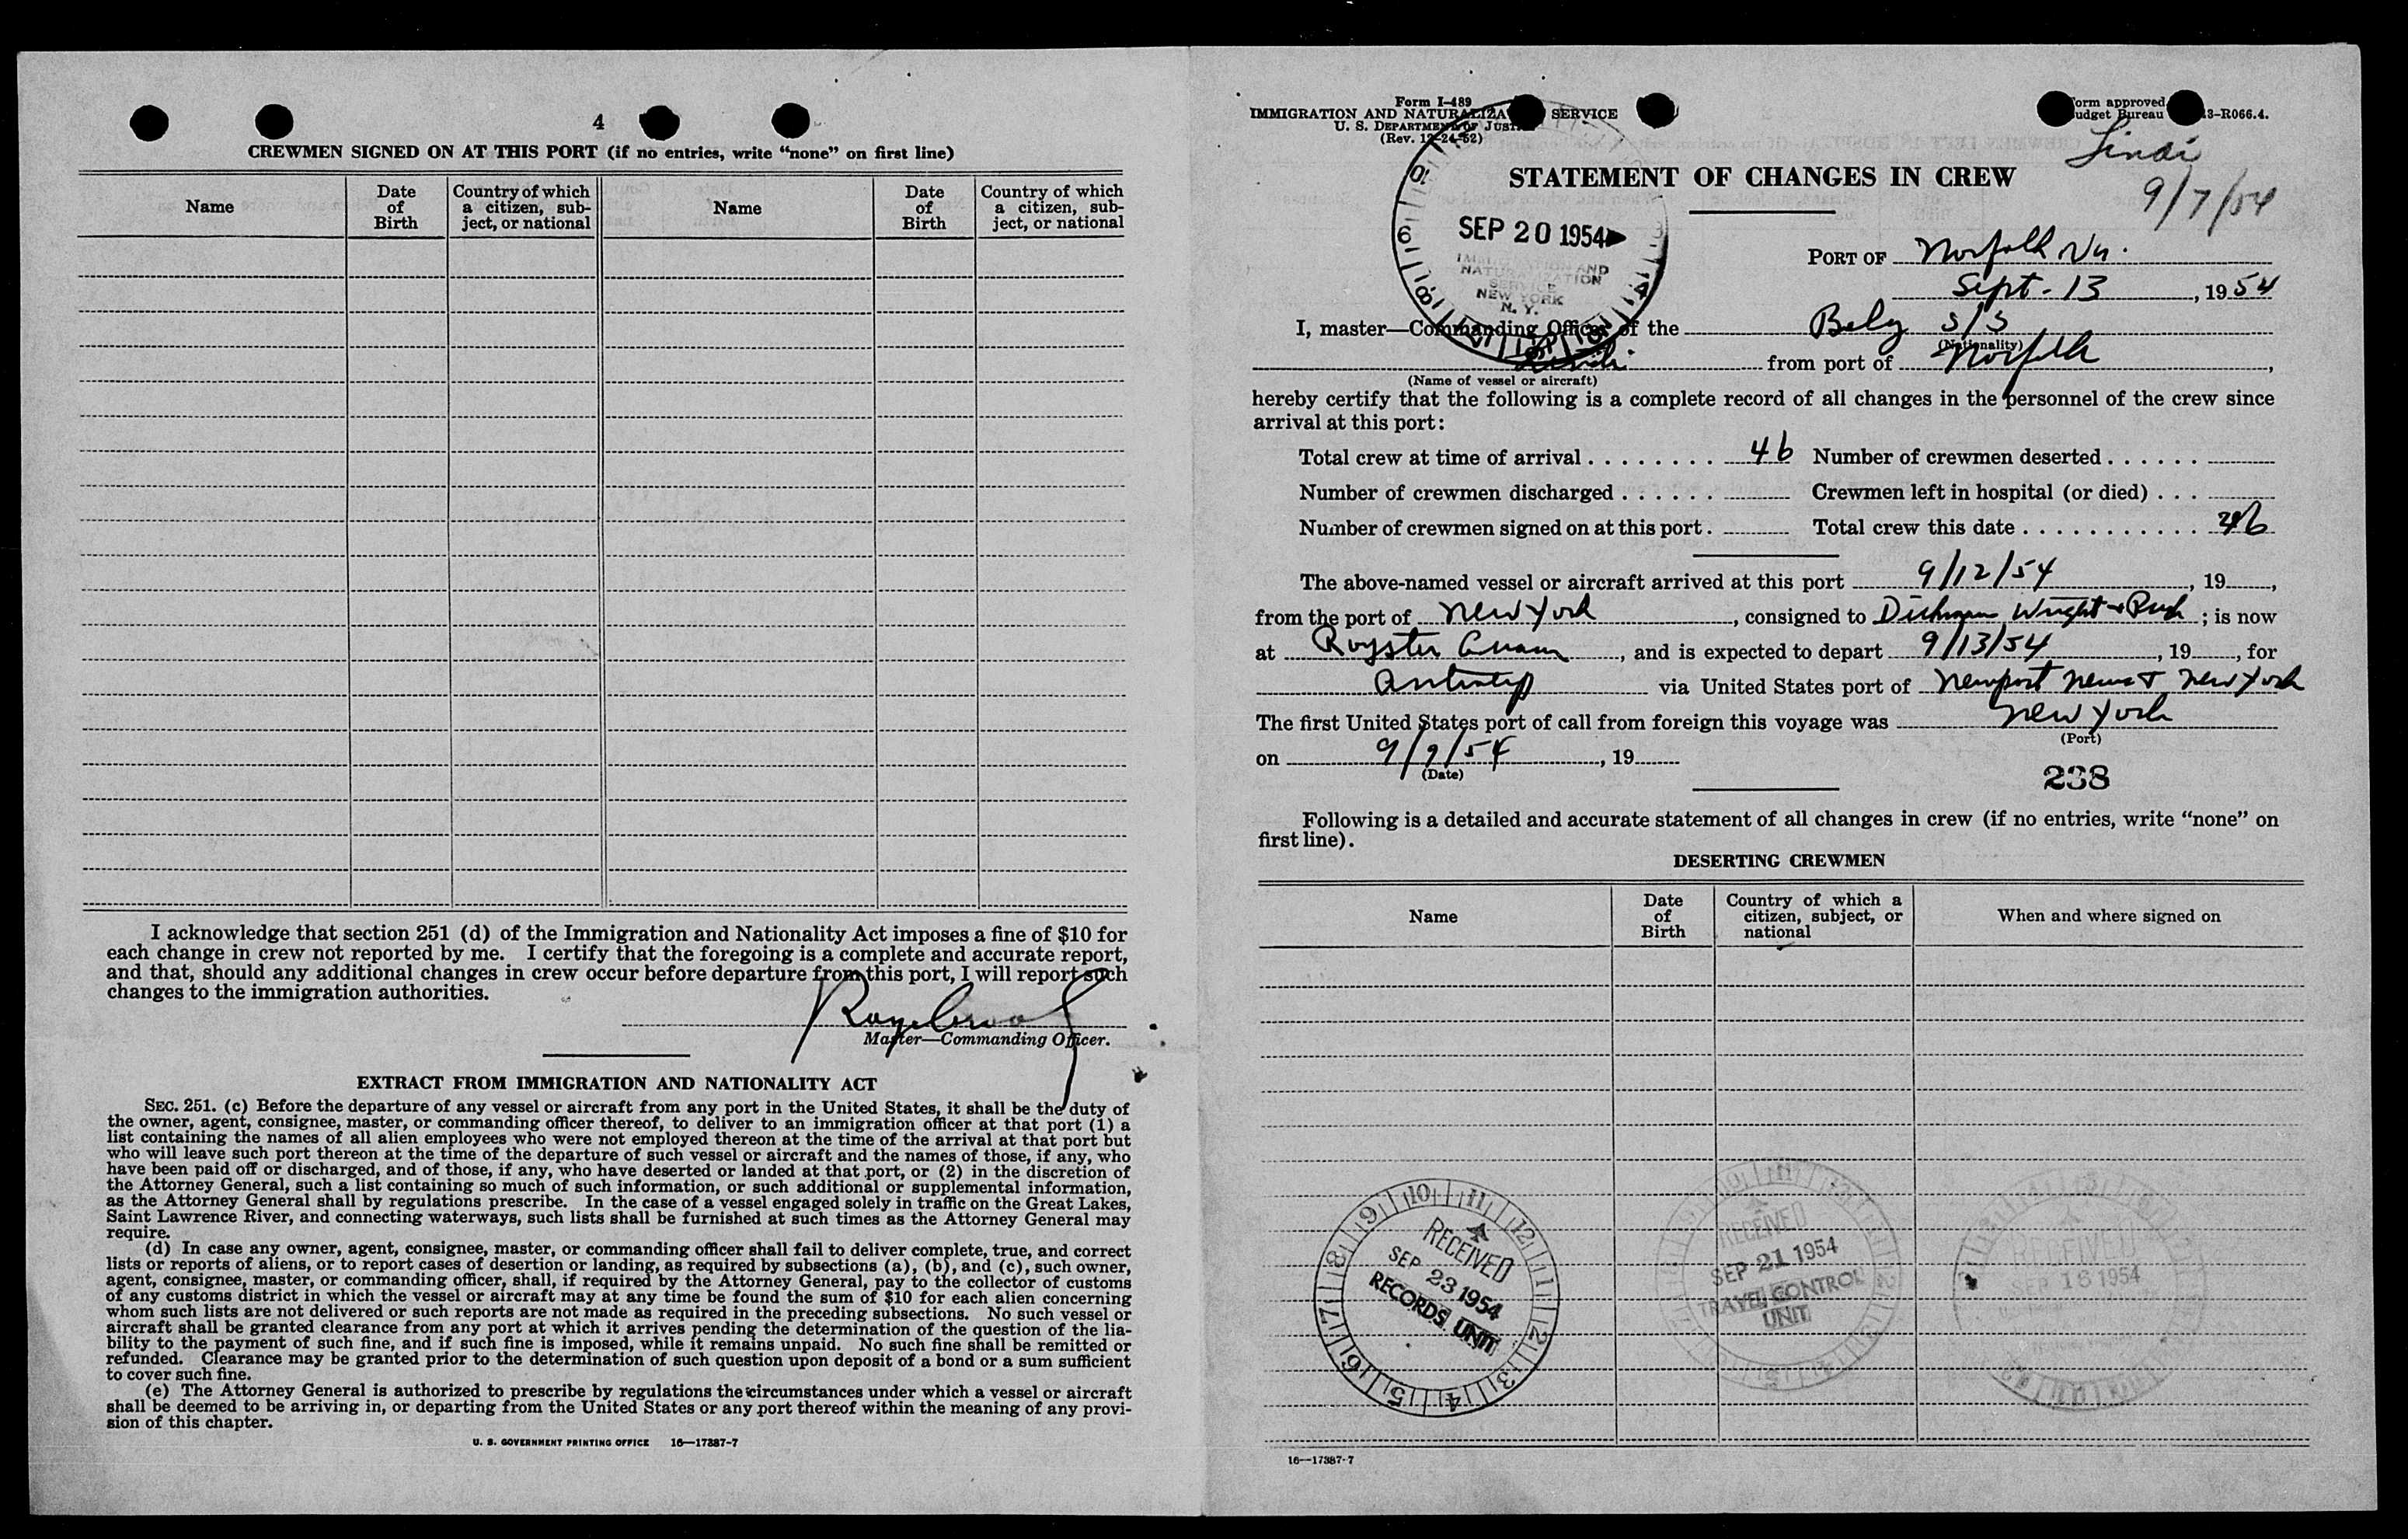 4
CREWMEN SIGNED ON AT THIS PORT (if no entries, write “none” on first line)
Name
Date of Birth
Country of which a citizen, subject, or national
Name
Date of Birth
Country of which a citizen, subject, or national
I acknowledge that section 251 (d) of the Immigration and Nationality Act imposes a fine of $10 for
each change in crew not reported by me. I certify that the foregoing is a complete and accurate report,
and that, should any additional changes in crew occur before departure from this port, I will report such
changes to the immigration authorities.
Master—Commanding Officer.
EXTRACT FROM IMMIGRATION AND NATIONALITY ACT
SEC. 251. (c) Before the departure of any vessel or aircraft from any port in the United States, it shall be the duty of
the owner, agent, consignee, master, or commanding officer thereof, to deliver to an immigration officer at that port (1) a
list containing the names of all alien employees who were not employed thereon at the time of the arrival at that port but
who will leave such port thereon at the time of the departure of such vessel or aircraft and the names of those, if any, who
have been paid off or discharged, and of those, if any, who have deserted or landed at that port, or (2) in the discretion of
the Attorney General, such a list containing so much of such information, or such additional or supplemental information,
as the Attorney General shall by regulations prescribe. In the case of a vessel engaged solely in traffic on the Great Lakes,
Saint Lawrence River, and connecting waterways, such lists shall be furnished at such times as the Attorney General may
require.
(d) In case any owner, agent, consignee, master, or commanding officer shall fail to deliver complete, true, and correct
lists or reports of aliens, or to report cases of desertion or landing, as required by subsections (a), (b), and (c), such owner,
agent, consignee, master, or commanding officer, shall, if required by the Attorney General, pay to the collector of customs
of any customs district in which the vessel or aircraft may at any time be found the sum of $10 for each alien concerning
whom such lists are not delivered or such reports are not made as required in the preceding subsections. No such vessel or
aircraft shall be granted clearance from any port at which it arrives pending the determination of the question of the lia-
bility to the payment of such fine, and if such fine is imposed, while it remains unpaid. No such fine shall be remitted or
refunded. Clearance may be granted prior to the determination of such question upon deposit of a bond or a sum sufficient
to cover such fine.
(e) The Attorney General is authorized to prescribe by regulations the circumstances under which a vessel or aircraft
shall be deemed to be arriving in, or departing from the United States or any port thereof within the meaning of any provi-
sion of this chapter.
U. S. GOVERNMENT PRINTING OFFICE 16—17387-7
Form I-489
IMMIGRATION AND NATURALIZA SERVICE
U. S. DEPARTMENT OF JUST
(Rev. 12-24-52)
orm approved
udget Bureau 3-R066.4.
Lindi
9/7/54
STATEMENT OF CHANGES IN CREW
SEP 20 1954
IMMIGRATION AND
NATURALIZATION
SERVICE
NEW YORK
N. Y.
PORT OF Norfolk Va.
Sept. 13, 1954
I, master—Commanding Officer of the Belg S/S
(Nationality)
Lindi from port of Norfolk,
(Name of vessel or aircraft)
hereby certify that the following is a complete record of all changes in the personnel of the crew since
arrival at this port:
Total crew at time of arrival 46 Number of crewmen deserted
Number of crewmen discharged Crewmen left in hospital (or died)
Number of crewmen signed on at this port. Total crew this date 46
The above-named vessel or aircraft arrived at this port 9/12/54, 19 ,
from the port of New York, consigned to Dichmann Wright & Pugh; is now
at Royster Guano, and is expected to depart 9/13/54, 19 , for
Antwerp via United States port of Newport News & New York
The first United States port of call from foreign this voyage was New York
(Port)
on 9/9/54, 19
(Date)
238
Following is a detailed and accurate statement of all changes in crew (if no entries, write “none” on
first line).
DESERTING CREWMEN
Name
Date of Birth
Country of which a citizen, subject, or national
When and where signed on
RECEIVED
SEP 23 1954
RECORDS UNIT
RECEIVED
SEP 21 1954
TRAVEL CONTROL
UNIT
RECEIVED
SEP 16 1954
16—17387-7